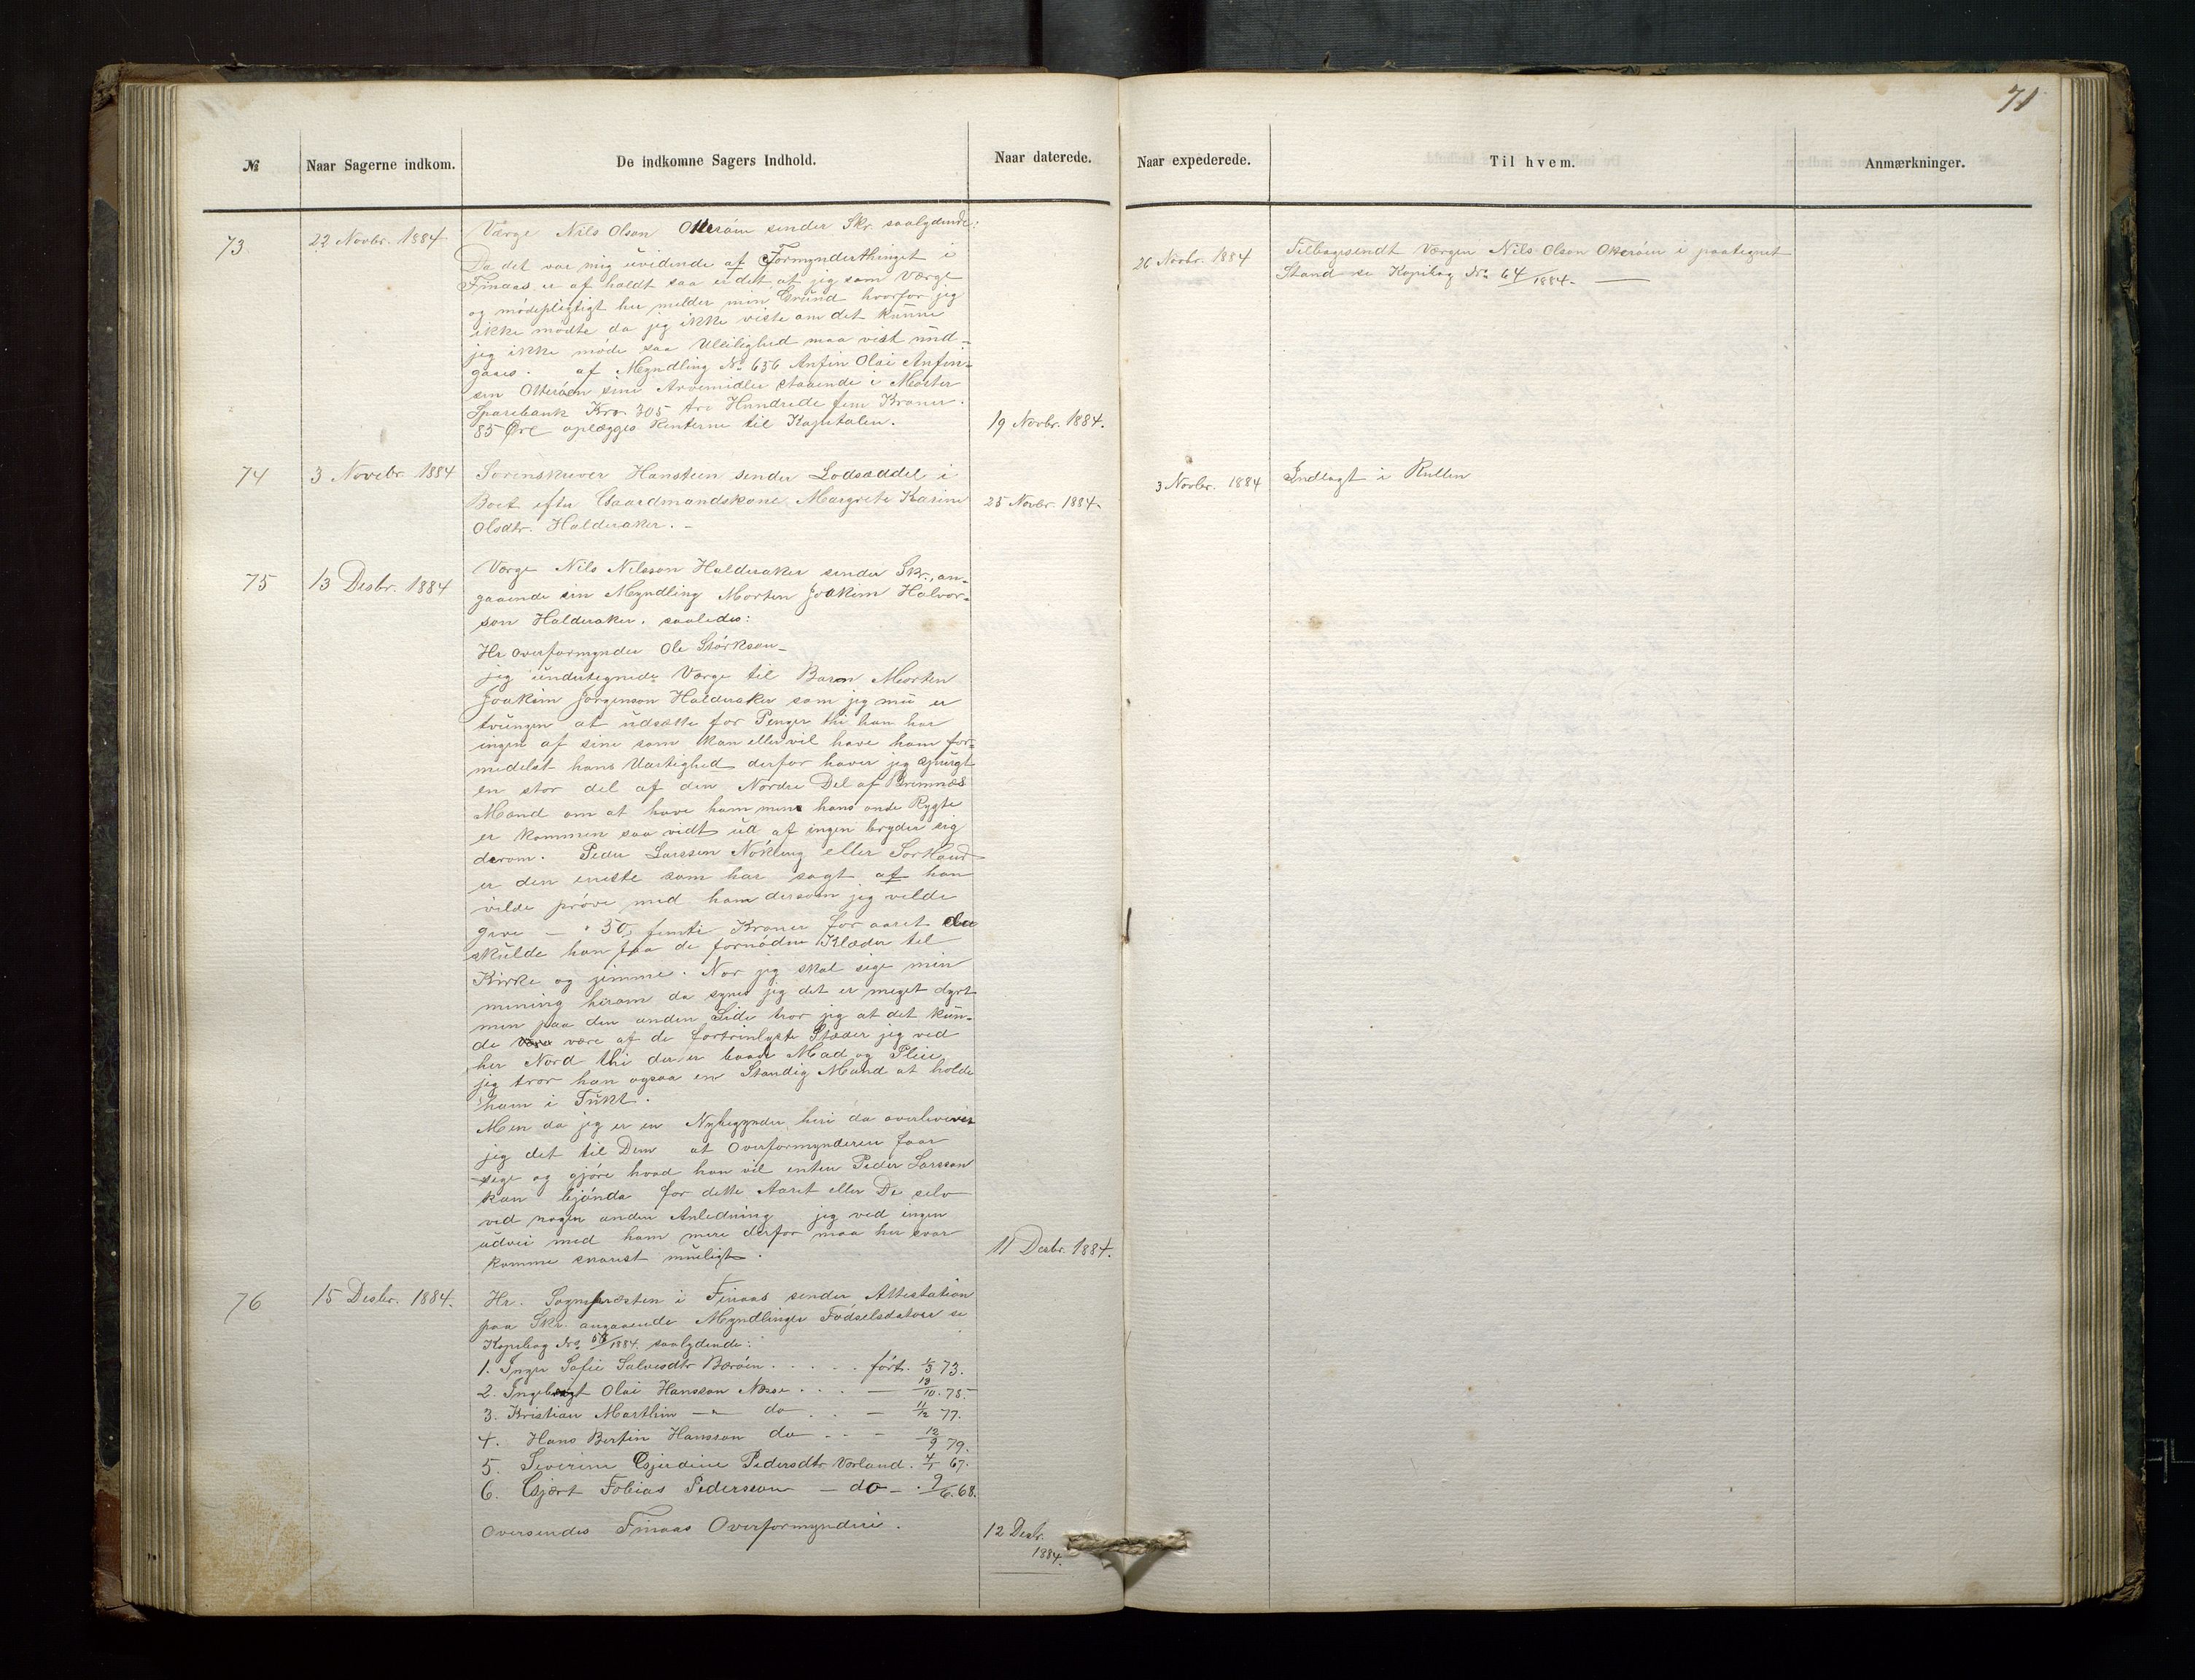 71
№
Naar Sagerne indkom.
De indkomne Sagers Indhold.
Naar daterede.
Naar expederede.
Til hvem.
Anmærkninger.
73
22 Novbr. 1884
Værge Nils Olson Otterøen sender Skr. saalydende:
Da det var mig uvidende af Formynderthinget i
Finaas er af holdt saa er det at jeg som Værge
og mødepligtigt her melder min Grund hvorfor jeg
ikke mødte da jeg ikke viste om det kunne
jeg ikke møde saa Uleilighed maa vist und-
gaaes. af Myndling No. 656 Anfin Olai Anfin-
sen Otterøen sine Arvemidler staaende i Moster
Sparebank Kro. 305 tre Hundrede fem Kroner.
85 Øre oplægges Renterne til Kapitalen.
19 Novbr. 1884.
26 Novbr. 1884
Tilbagesendt Værgen Nils Olson Otterøen i paategnet
Stand se Kopibog No. 64/1884.
74
3 Novebr. 1884
Sorenskriver Hansteen sender Lodseddel i
Boet efter Gaardmandskone Margrete Karine
Olsdtr. Halderaker. -
25 Novbr. 1884.
3 Novbr. 1884
Indlagt i Rullen
75
13 Desbr. 1884
Værge Nils Nilsson Halderaker sender Skr., an-
gaaende sin Myndling Morten Joakim Halvor-
son Halderaker. saaledes:
Hr Overformynder Ole Størkson-
jeg undertegnede Værge til Baren Morten
Joakim Jørgenson Halderaker som jeg nu er
tvungen at udsætte for Penger thi han har
ingen af sine som kan eller vil have ham for-
medelst hans Uartighed derfor haver jeg spurgt
en stor del af den Nordre Del af Bremnæs
Mand om at have ham men hans onde Rygte
er kommen saa vidt ud af ingen bryder sig
derom. Peder Larsson Nøkling eller Sortland
er den eneste som har sagt af han
vilde prøve med ham dersom jeg vilde
give - "50, femti Kroner for aaret da
skulde han faa de fornødne Klæder til
Kirke og jimme. Nor jeg skal sige min
mening herom da synes jeg det er meget dyrt
men paa den anden Side tror jeg at det kun-
de være af de fortrinlyste Stæder jeg ved
her Nord thi der er baade Mad og Pleie
jeg tror han ogsaa en Standig Mand at holde
ham i Tukt.
Men da jeg er en Nybegynder heri da overleverer
jeg det til Dem at Overformynderen faar
sige og gjøre hvad han vil enten Peder Larsson
kan bejønda for dette Aaret eller De selv
ved nogen anden Anledning jeg ved ingen
udvei med ham mere derfor maa her svar
komme snarest mueligt.
11 Desbr. 1884.
76
15 Desbr. 1884.
Hr. Sognepræsten i Finaas sender Attestation
paa Skr. angaaende Myndlinger Fødselsdatoer se
Kopibog No. 58/1884. saalydende:
1. Inger Sofie Salvesdtr Børøen . . . . . født. 73.
2. Ingebrigt Olai Hansson Næsse . . . - 13/10. 75.
3. Kristian Marthin -"- do . . - 11/12 77.
4. Hans Bertin Hansson do . . - 12/9 79.
5. Severine Gjerdine Pedersdtr Vorland. 67.
6. Gjært Tobias Pedersson - do - . 9/6. 68.
Oversendes Finaas Overformynderi.
12 Desbr.
1884.